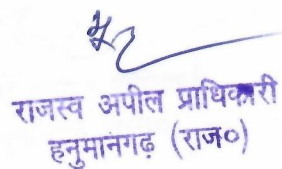 राजस्व अपील प्राधिकारी
हनुमानगढ़ (राज०)